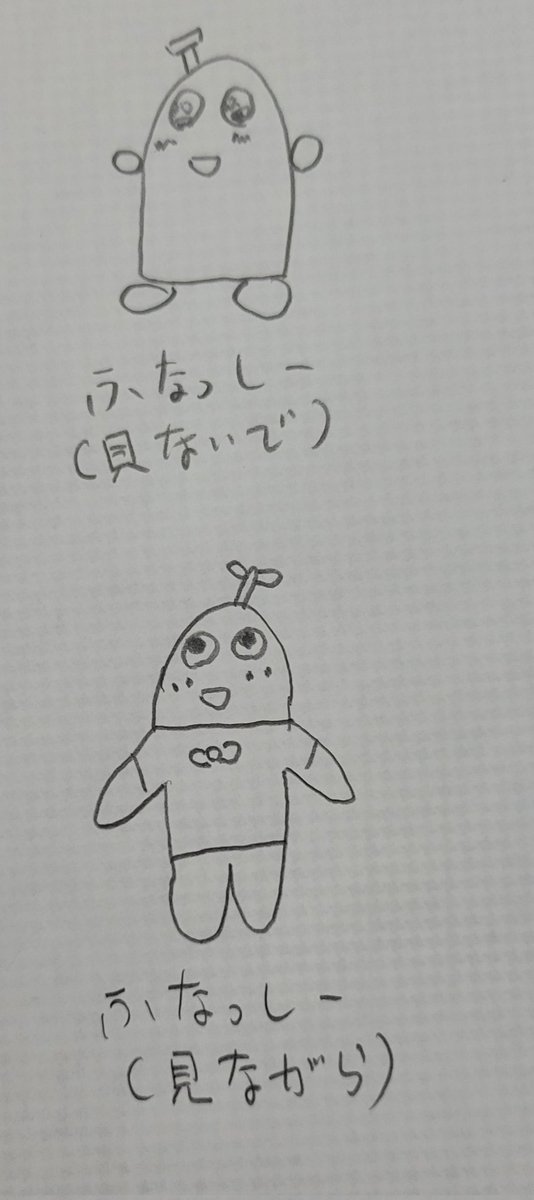 ふなっしー
(貝ないで)
ふなっしー
(見ながら)